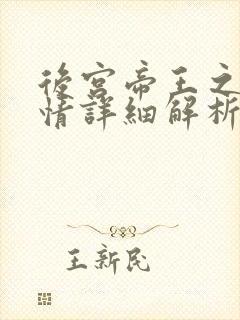 後宮帝王之
情詳細解析
王新民